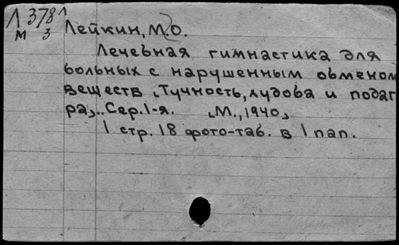 Л 378
М 3
Лейкин, М.О.
Лечебная гимнастика для
больных с нарушенным обменом
веществ „Тучность, худоба и подаг
ра„. Сер. 1-я. „М., 1940„
1 стр. 18 фото-таб. в 1 пап.